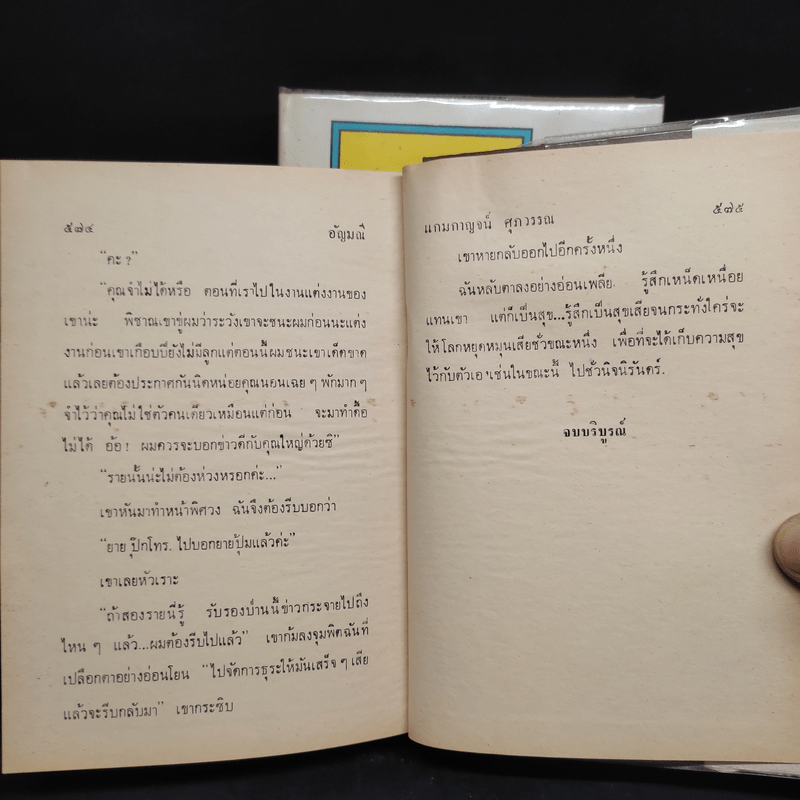 ๕๗๔ อัญมณี
“คะ ?”
“คุณจำไม่ได้หรือ ตอนที่เราไปในงานแต่งงานของ
เขาน่ะ พิชาณเขาขู่ผมว่าระวังเขาจะชนะผมก่อนนะแต่ง
งานก่อนเขาเกือบปียังไม่มีลูกแต่ตอนนี้ผมชนะเขาเด็ดขาด
แล้วเลยต้องประกาศกันนิดหน่อยคุณนอนเฉย ๆ พักมาก ๆ
จำไว้ว่าคุณไม่ใช่ตัวคนเดียวเหมือนแต่ก่อน จะมาทำดื้อ
ไม่ได้ อ้อ ! ผมควรจะบอกข่าวดีกับคุณใหญ่ด้วยซิ”
“รายนั้นน่ะไม่ต้องห่วงหรอกค่ะ...”
เขาหันมาทำหน้าพิศวง ฉันจึงต้องรีบบอกว่า
“ยาย ปุ๊กโทร. ไปบอกยายปุ้มแล้วค่ะ”
เขาเลยหัวเราะ
“ถ้าสองรายนี่รู้ รับรองป่านนี้ข่าวกระจายไปถึง
ไหน ๆ แล้ว...ผมต้องรีบไปแล้ว” เขาก้มลงจุมพิตฉันที่
เปลือกตาอย่างอ่อนโยน “ไปจัดการธุระให้มันเสร็จ ๆ เสีย
แล้วจะรีบกลับมา” เขากระซิบ
แกมกาญจน์ ศุภวรรณ ๕๗๕
เขาหายกลับออกไปอีกครั้งหนึ่ง
ฉันหลับตาลงอย่างอ่อนเพลีย รู้สึกเหน็ดเหนื่อย
แทนเขา แต่ก็เป็นสุข...รู้สึกเป็นสุขเสียจนกระทั่งใคร่จะ
ให้โลกหยุดหมุนเสียชั่วขณะหนึ่ง เพื่อที่จะได้เก็บความสุข
ไว้กับตัวเองเช่นในขณะนี้ ไปชั่วนิจนิรันดร์.
จบบริบูรณ์